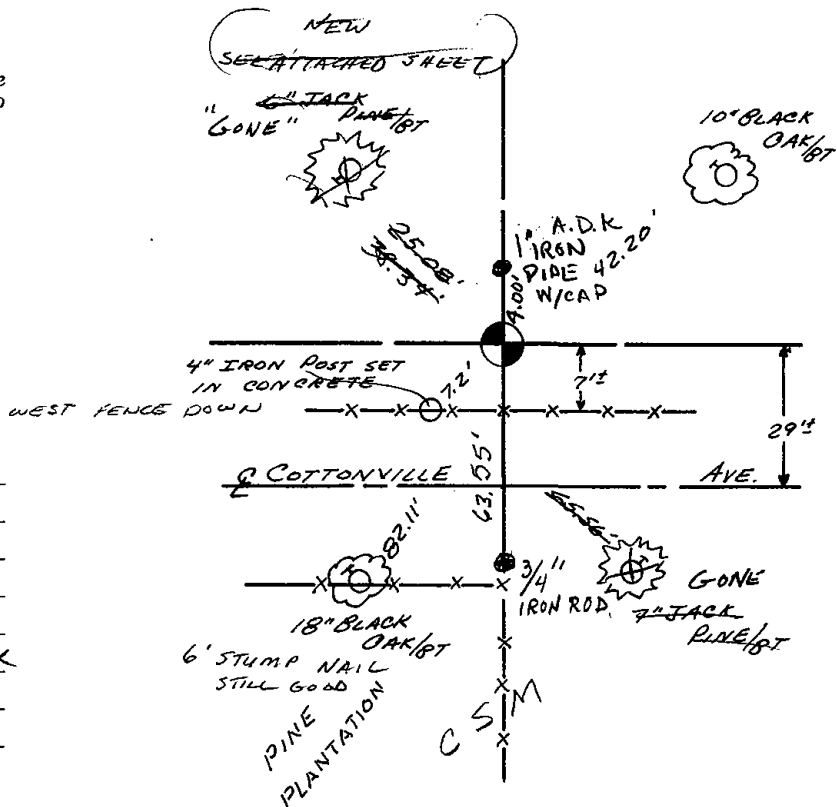 NEW
SEE ATTACHED SHEET
6" JACK
PINE/BT
"GONE"
10" BLACK
OAK/BT
25.08'
38.34'
1" A.D.K
IRON
PIPE
W/CAP
42.20'
4.00'
4" IRON POST SET
IN CONCRETE
7.2'
7'±
WEST FENCE DOWN
29'±
63.55'
℄ COTTONVILLE AVE.
82.11'
3/4"
IRON ROD
GONE
7" JACK
PINE/BT
18" BLACK
OAK/BT
6' STUMP NAIL
STILL GOOD
PINE
PLANTATION
CSM